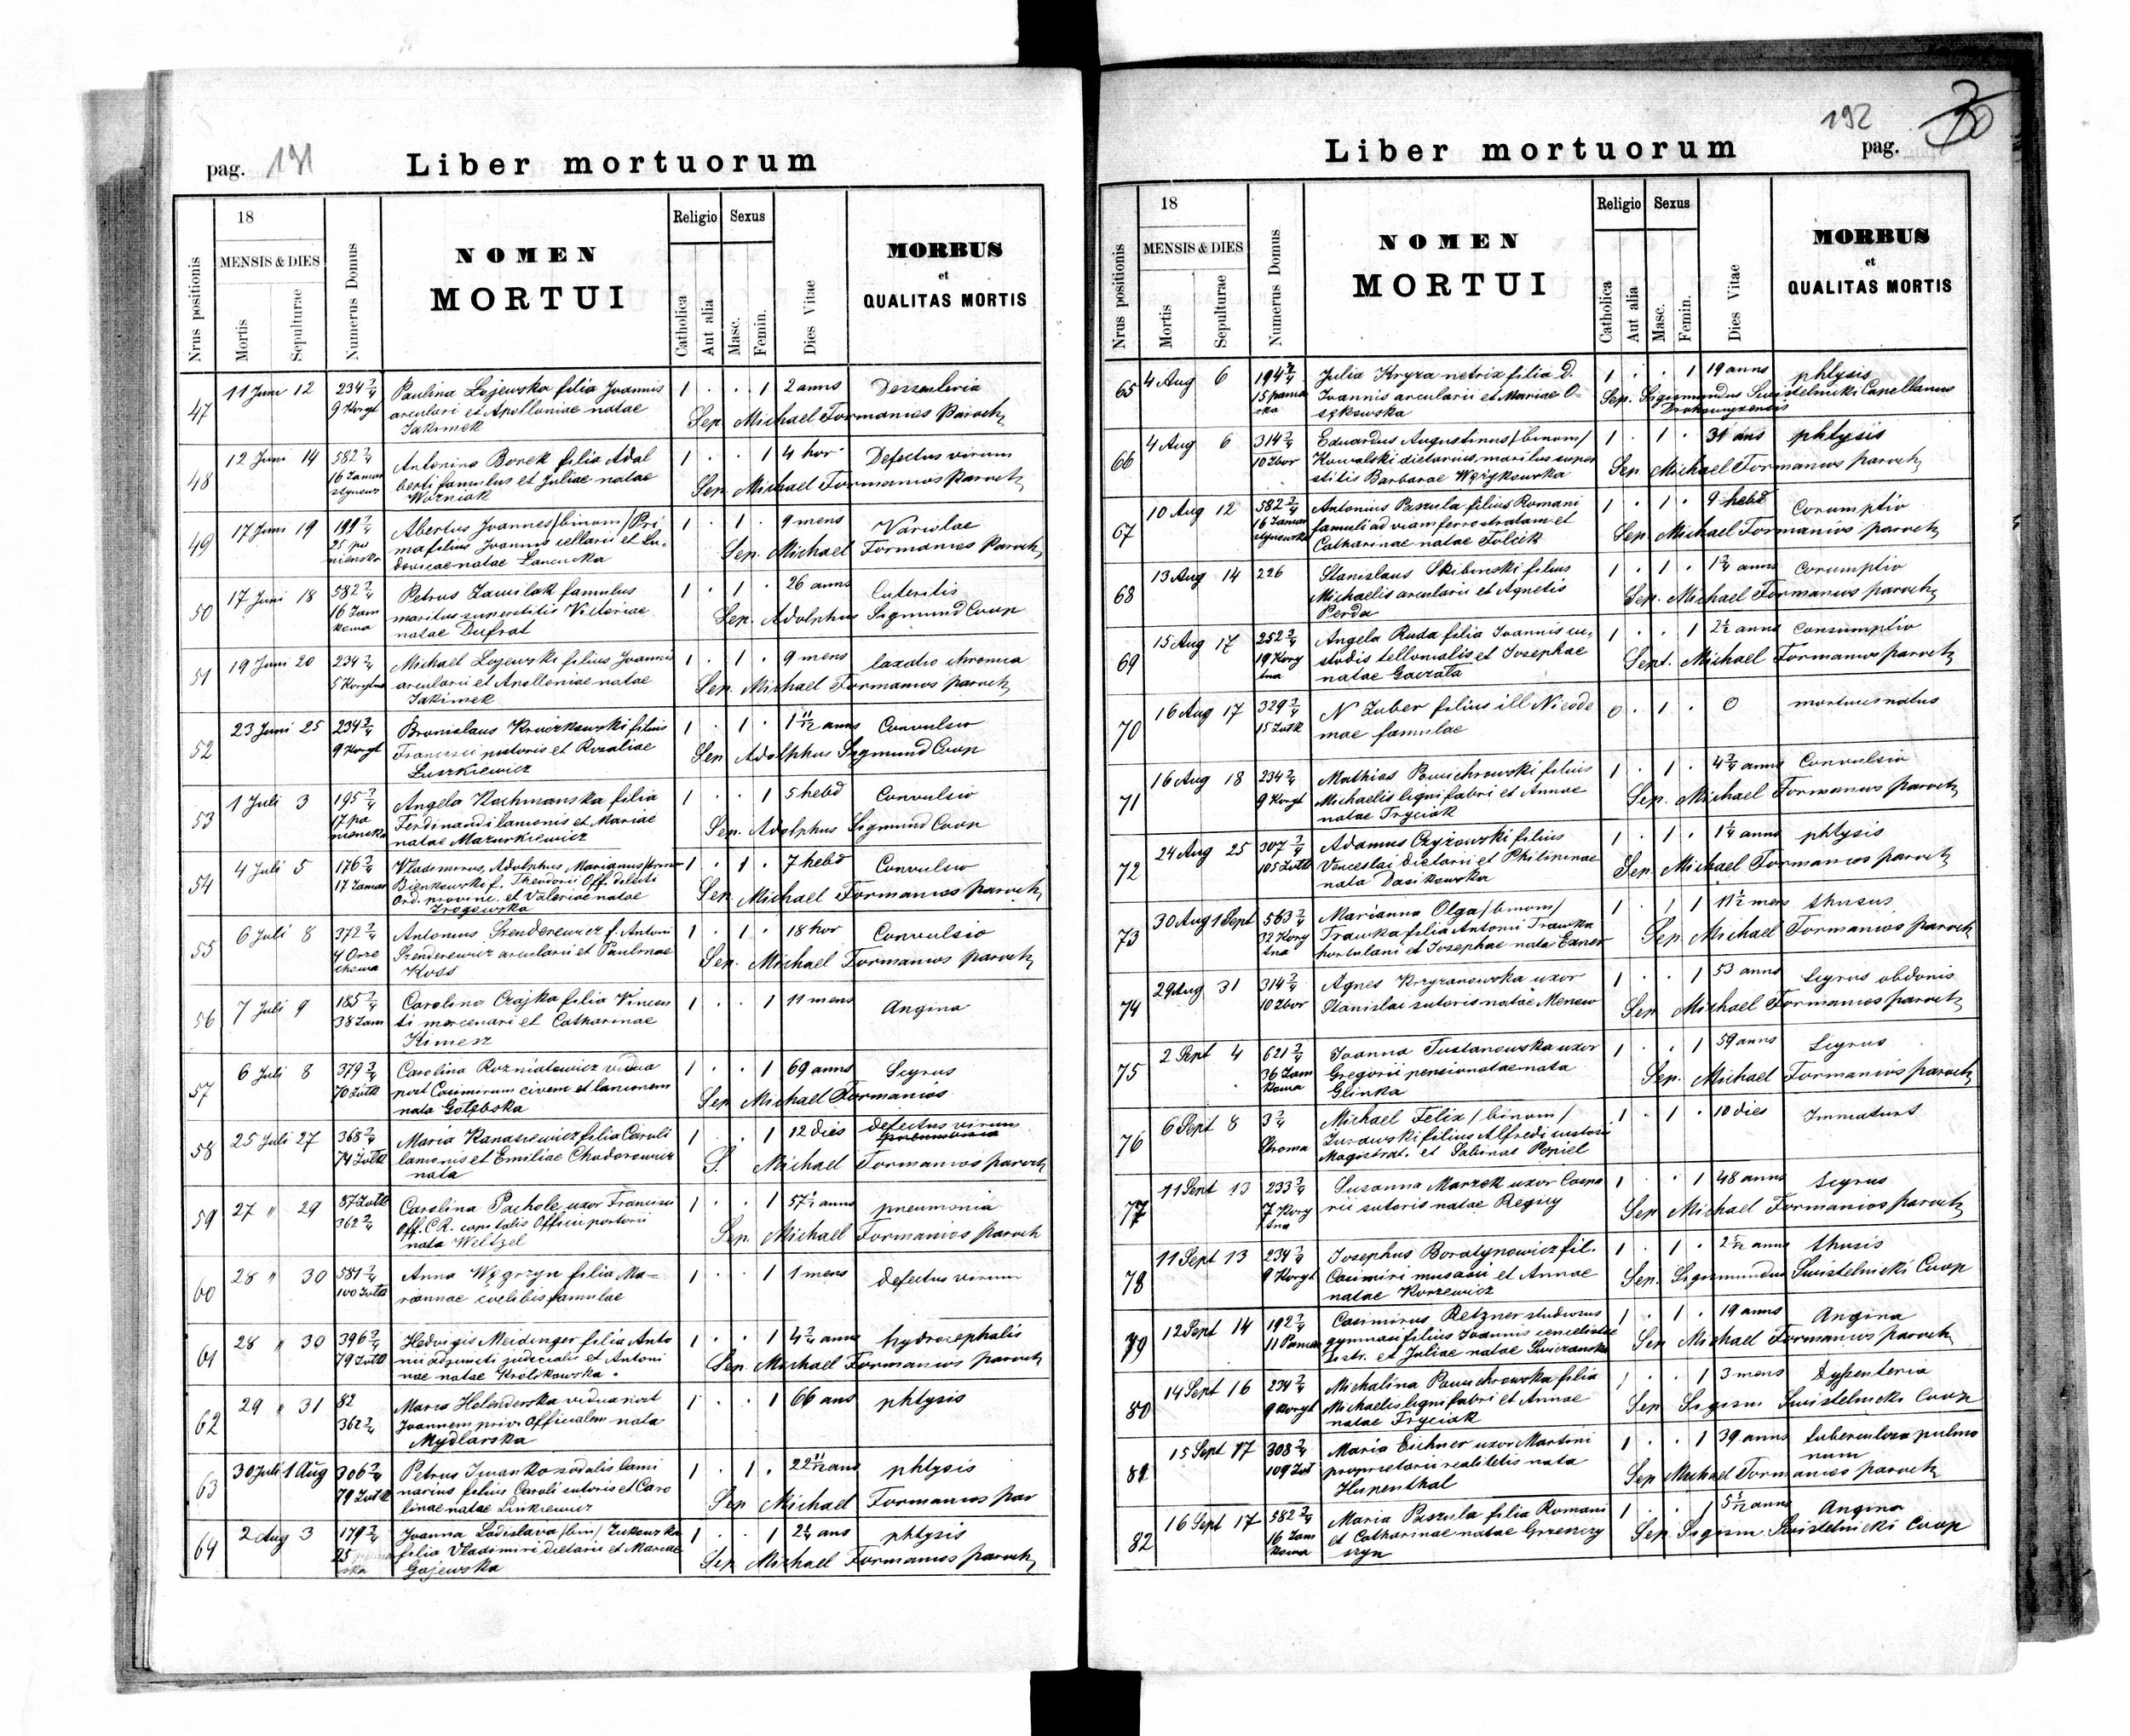 pag. 191
Liber mortuorum
Nrus positionis
18
MENSIS & DIES
Mortis
Sepulturae
Numerus Domus
NOMEN
MORTUI
Religio
Catholica
Aut alia
Sexus
Masc.
Femin.
Dies Vitae
MORBUS
et
QUALITAS MORTIS
47 11 Juni 12 234 2/4 Paulina Łojewska filia Joannis 1 . . 1 2 anns Dessenteria
9 Koryt arculari et Apolloniae natae Sep Michael Formanios Paroch
Jakimek
48 12 Juni 14 582 2/4 Antonina Borek filia Adal 1 . . 1 4 hor Defectus virium
16 Zamar berti famulus et Juliae natae Sep Michael Formanios Paroch
stynows Woźniak
49 17 Juni 19 199 2/4 Abertus Joannes /binom/ Pri 1 . 1 . 9 mens Variolae
25 pa ma filius Joannis cellarii et Lu- Sep. Michael Formanios Paroch
nienska dovicae natae Lancucka
50 17 Juni 18 582 2/4 Petrus Zawilak famulus 1 . 1 . 26 anns Enteritis
16 Zam maritus superstitis Victoriae Sep. Adolphus Sigmund Coop
kowa natae Dufrat
51 19 Juni 20 234 2/4 Michael Łojewski filius Joannis 1 . 1 . 9 mens laxatio chronica
5 Korytna arcularii et Apolloniae natae Sep. Michael Formanios paroch
Jakimek
52 23 Juni 25 234 2/4 Bronislaus Kruczkowski filius 1 . 1 . 1 11/12 anns Convulsio
9 Koryt Francisci pistoris et Rozaliae Sep Adolphus Sigmund Coop
Luszkiewicz
53 1 Juli 3 195 2/4 Angela Kochmanska filia 1 . . 1 5 hebd Convulsio
17 pa Ferdinandi lanionis et Mariae Sep. Adolphus Sigmund Coop
nienska natae Mazurkiewicz
54 4 Juli 5 176 2/4 Vlademirus, Adolphus, Marianus 1 . 1 . 7 hebd Convulsio
17 Zamar Bieńkowski f. Theodorii Off. Sep Michael Formanios paroch
Ord. provinc. et Valeriae natae
55 6 Juli 8 372 2/4 Antonius Szenderewicz f. Antoni 1 . 1 . 18 hor Convulsio
4 Orze Szenderewicz arcularii et Paulinae Sep. Michael Formanios paroch
chowa Koss
56 7 Juli 9 185 2/4 Carolina Czajka filia Vincen 1 . . 1 11 mens Angina
38 Zam ti mercenari et Catharinae
Kimesz
57 6 Juli 8 379 2/4 Carolina Rozniatowicz vidua 1 . . 1 69 anns Scyrus
70 Zołk post Casimirum civem et lanionem Sep Michael Formanios
nata Gołębska
58 25 Juli 27 368 2/4 Maria Kanasiewicz filia Caroli 1 . . 1 12 dies defectus virium
74 Zołk lanionis et Emiliae Chodorowicz S. Michael Formanios paroch
nata
59 27 " 29 87 Zołk Carolina Pachole uxor Francisci 1 . . 1 57 1/2 anns pneumonia
362 2/4 Off. C.R. capitalis Officii portorii Sep. Michael Formanios paroch
nata Weltzel
60 28 " 30 581 2/4 Anna Węgrzyn filia Ma- 1 . . 1 1 mens defectus virium
100 Zołk riannae coelibis famulae
61 28 " 30 396 2/4 Hedvigis Meidinger filia Anto 1 . . 1 4 2/4 anns hydrocephalis
79 Zołk nii adjuncti judicialis et Antoni Sep. Michael Formanios paroch
nae natae Krolikowska
62 29 " 31 82 Maria Helenderska vidua post 1 . . 1 66 ans phtysis
362 2/4 Joannem priv. Officialem nata
Mydlarska
63 30 Juli 1 Aug 306 2/4 Petrus Iwanko sodalis Cami 1 . 1 . 22 11/12 ans phtysis
79 Zołk narius filius Caroli sutoris et Caro Sep Michael Formanios par
linae natae Linkiewicz
64 2 Aug 3 179 2/4 Joanna Ladislava /bin/ Zukowska 1 . . 1 2 1/4 ans phtysis
25 filia Vladimiri dietarii et Mariae Sep Michael Formanios paroch
ska Gajewska
192
30
Liber mortuorum
pag.
Nrus positionis
18
MENSIS & DIES
Mortis
Sepulturae
Numerus Domus
NOMEN
MORTUI
Religio
Catholica
Aut alia
Sexus
Masc.
Femin.
Dies Vitae
MORBUS
et
QUALITAS MORTIS
65 4 Aug 6 194 2/4 Julia Kryza netrix filia d. 1 . . 1 19 anns phtysis
15 panna Joannis arcularii et Mariae O- Sep. Sigismundus Swistelnicki Capellanus
ska sękowska Drohowyzensis
66 4 Aug 6 314 2/4 Eduardus Augustinus /binom/ 1 . 1 . 31 ans phtysis
10 Zbor Kowalski dietarius, maritus super Sep Michael Formanios paroch
stitis Barbarae Wężykowska
67 10 Aug 12 582 2/4 Antonius Paszula filius Romani 1 . 1 . 9 hebd Corumptio
16 Zamar famuli ad viam ferro stratam et Sep. Michael Formanios paroch
stynowska Catharinae natae Folcik
68 13 Aug 14 226 Stanislaus Skibinski filius 1 . 1 . 1 3/4 anns corumptio
Michaelis arcularii et Agnetis Sep. Michael Formanios paroch
Perda
69 15 Aug 17 252 2/4 Angela Ruda filia Joannis cu- 1 . . 1 2 1/2 anns consumptio
19 Kory stodis tellonialis et Josephae Sept. Michael Formanios paroch
tna natae Gaczoła
70 16 Aug 17 329 2/4 N Zuber filius ill Nicode 0 . 1 . 0 mortuus natus
15 Zołk mae famulae
71 16 Aug 18 234 2/4 Mathias Powichrowski filius 1 . 1 . 4 3/4 anns Convulsio
9 Koryt Michaelis lignifabri et Annae Sep. Michael Formanios paroch
natae Tryciak
72 24 Aug 25 307 2/4 Adamus Czyżowski filius 1 . 1 . 1 1/4 anns phtysis
105 Zołk Venceslai dietarii et Philipinae Sep. Michael Formanios paroch
nata Dasikowska
73 30 Aug 1 Sept 563 2/4 Marianna Olga /binom/ 1 . 1 1 11 1/2 mens thusus
32 Kory Trawka filia Antonii Trawka Sep. Michael Formanios paroch
tna hortulani et Josephae nata Exner
74 29 Aug 31 314 2/4 Agnes Krzyzanowska uxor 1 . . 1 53 anns Scyrus abdonis
10 Zbor Stanislai sutoris natae Mencow Sep Michael Formanios paroch
75 2 Sept 4 621 2/4 Joanna Tustanowska uxor 1 . . 1 59 anns Scyrus
36 Zam Gregorii pensionatae nata Sep. Michael Formanios paroch
kowa Glinka
76 6 Sept 8 3 2/4 Michael Felix /binom/ 1 . 1 . 10 dies Immaturit
Stroma Zurawski filius Alfredi custodis
Magistrat. et Sabinae Popiel
77 11 Sept 13 233 2/4 Susanna Marzek uxor Caspa 1 . . 1 48 anns Scyrus
7 Kory rii sutoris natae Regucy Sep Michael Formanios paroch
tna
78 11 Sept 13 234 2/4 Josephus Boratynowicz fil. 1 . 1 . 2 2/12 anns thusis
9 Koryt Casimiri musasii et Annae Sep. Sigismundus Swistelnicki Coop
natae Korzewicz
79 12 Sept 14 192 2/4 Casimirus Retzner studiosus 1 . 1 . 19 anns Angina
11 Panien gymnasi filius Joannis cancelistae Sep Michael Formanios paroch
distr. et Juliae natae Swiczanska
80 14 Sept 16 234 2/4 Michalina Powichrowska filia 1 . . 1 3 mens Dyssenteria
9 Koryt Michaelis lignifabri et Annae Sep Sigism Swistelnicki Coop
natae Tryciak
81 15 Sept 17 308 2/4 Maria Eichner uxor Martini 1 . . 1 39 anns tuberculosa pulmo
109 Zoł proprietarii realitetis nata num
Hupenthal Sep Michael Formanios paroch
82 16 Sept 17 582 2/4 Maria Paszula filia Romani 1 . . 1 5 5/12 anns Angina
16 Zam et Catharinae natae Grzenczy Sep. Sigism. Swistelnicki Coop
kowa szyn